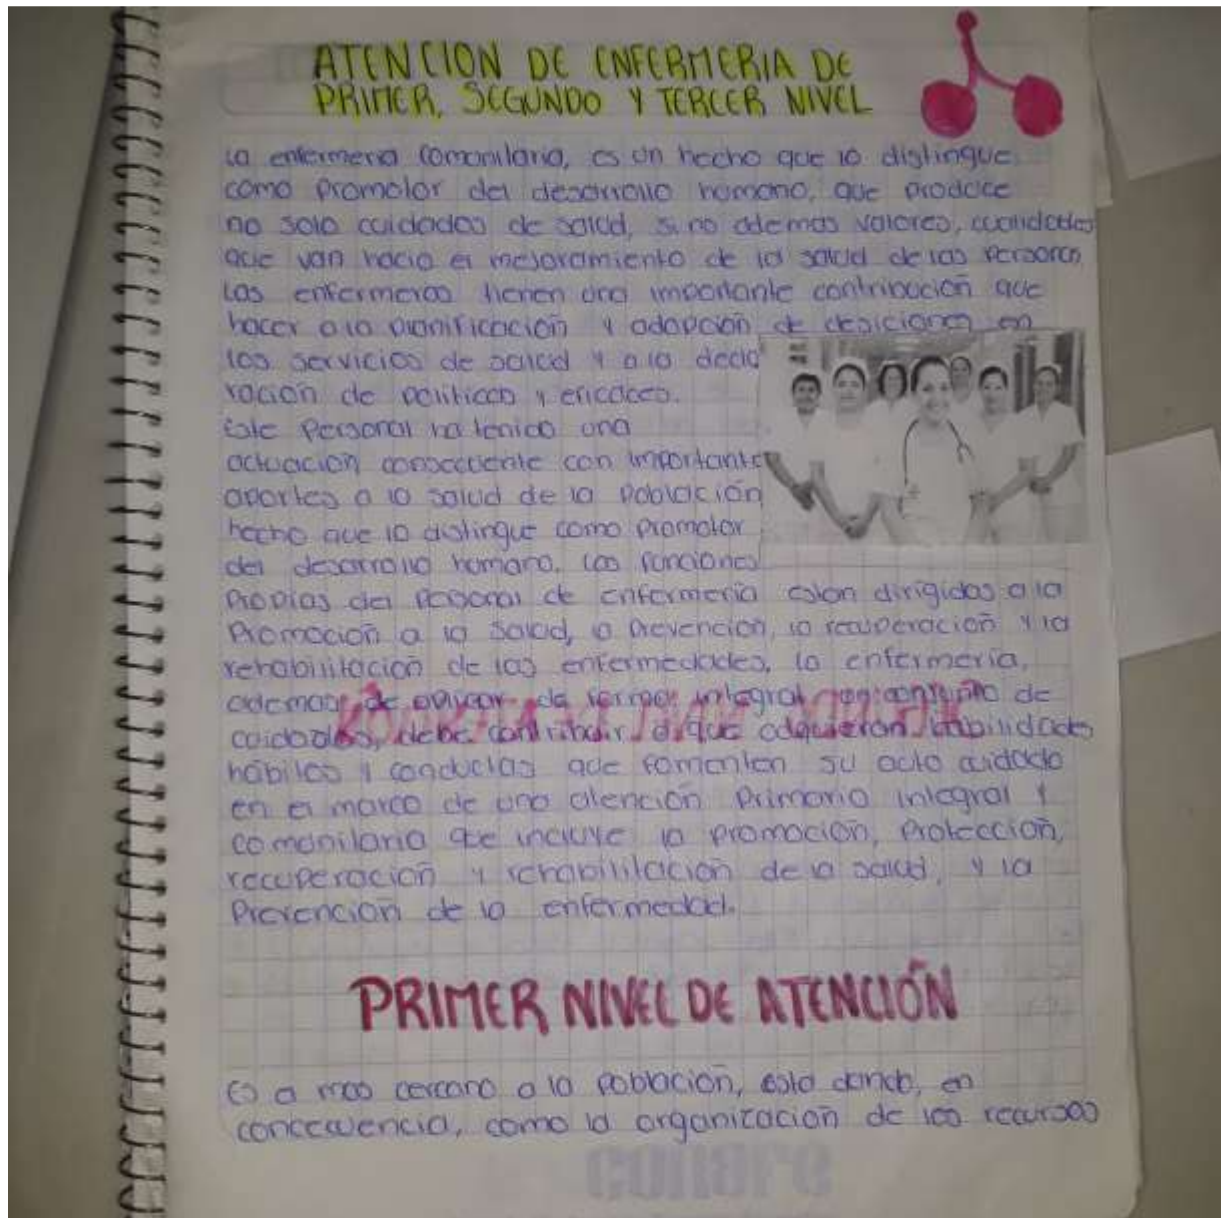 ATENCION DE ENFERMERIA DE
PRIMER, SEGUNDO Y TERCER NIVEL
La enfermeria comunitaria, es un hecho que lo distingue
como promotor del desarrollo humano, que produce
no solo cuidados de salud, si no ademas valores, cualidades
que van hacia el mejoramiento de la salud de las personas
Las enfermeras tienen una importante contribución que
hacer a la planificación y adopción de desiciones en
los servicios de salud y a la decla
ración de politicas y eficaces.
Este Personal ha tenido una
actuación consecuente con importante
aportes a la salud de la Población
hecho que lo distingue como promotor
del desarrollo humano. Las funciones
Propias del Personal de enfermería estan dirigidas a la
Promoción a la Salud, la Prevención, la recuperación y la
rehabilitación de las enfermedades. la enfermería,
ademas de aplicar de forma integral un conjunto de
cuidados, debe contribuir a que adquieran habilidades
hábitos y conductas que fomenten su auto cuidado
en el marco de una atención Primaria integral y
comunitaria que incluye la promoción, Protección,
recuperación y rehabilitación de la salud, y la
Prevención de la enfermedad.
PRIMER NIVEL DE ATENCIÓN
Es a mas cercano a la Población, esta dando, en
concecuencia, como la organización de los recursos